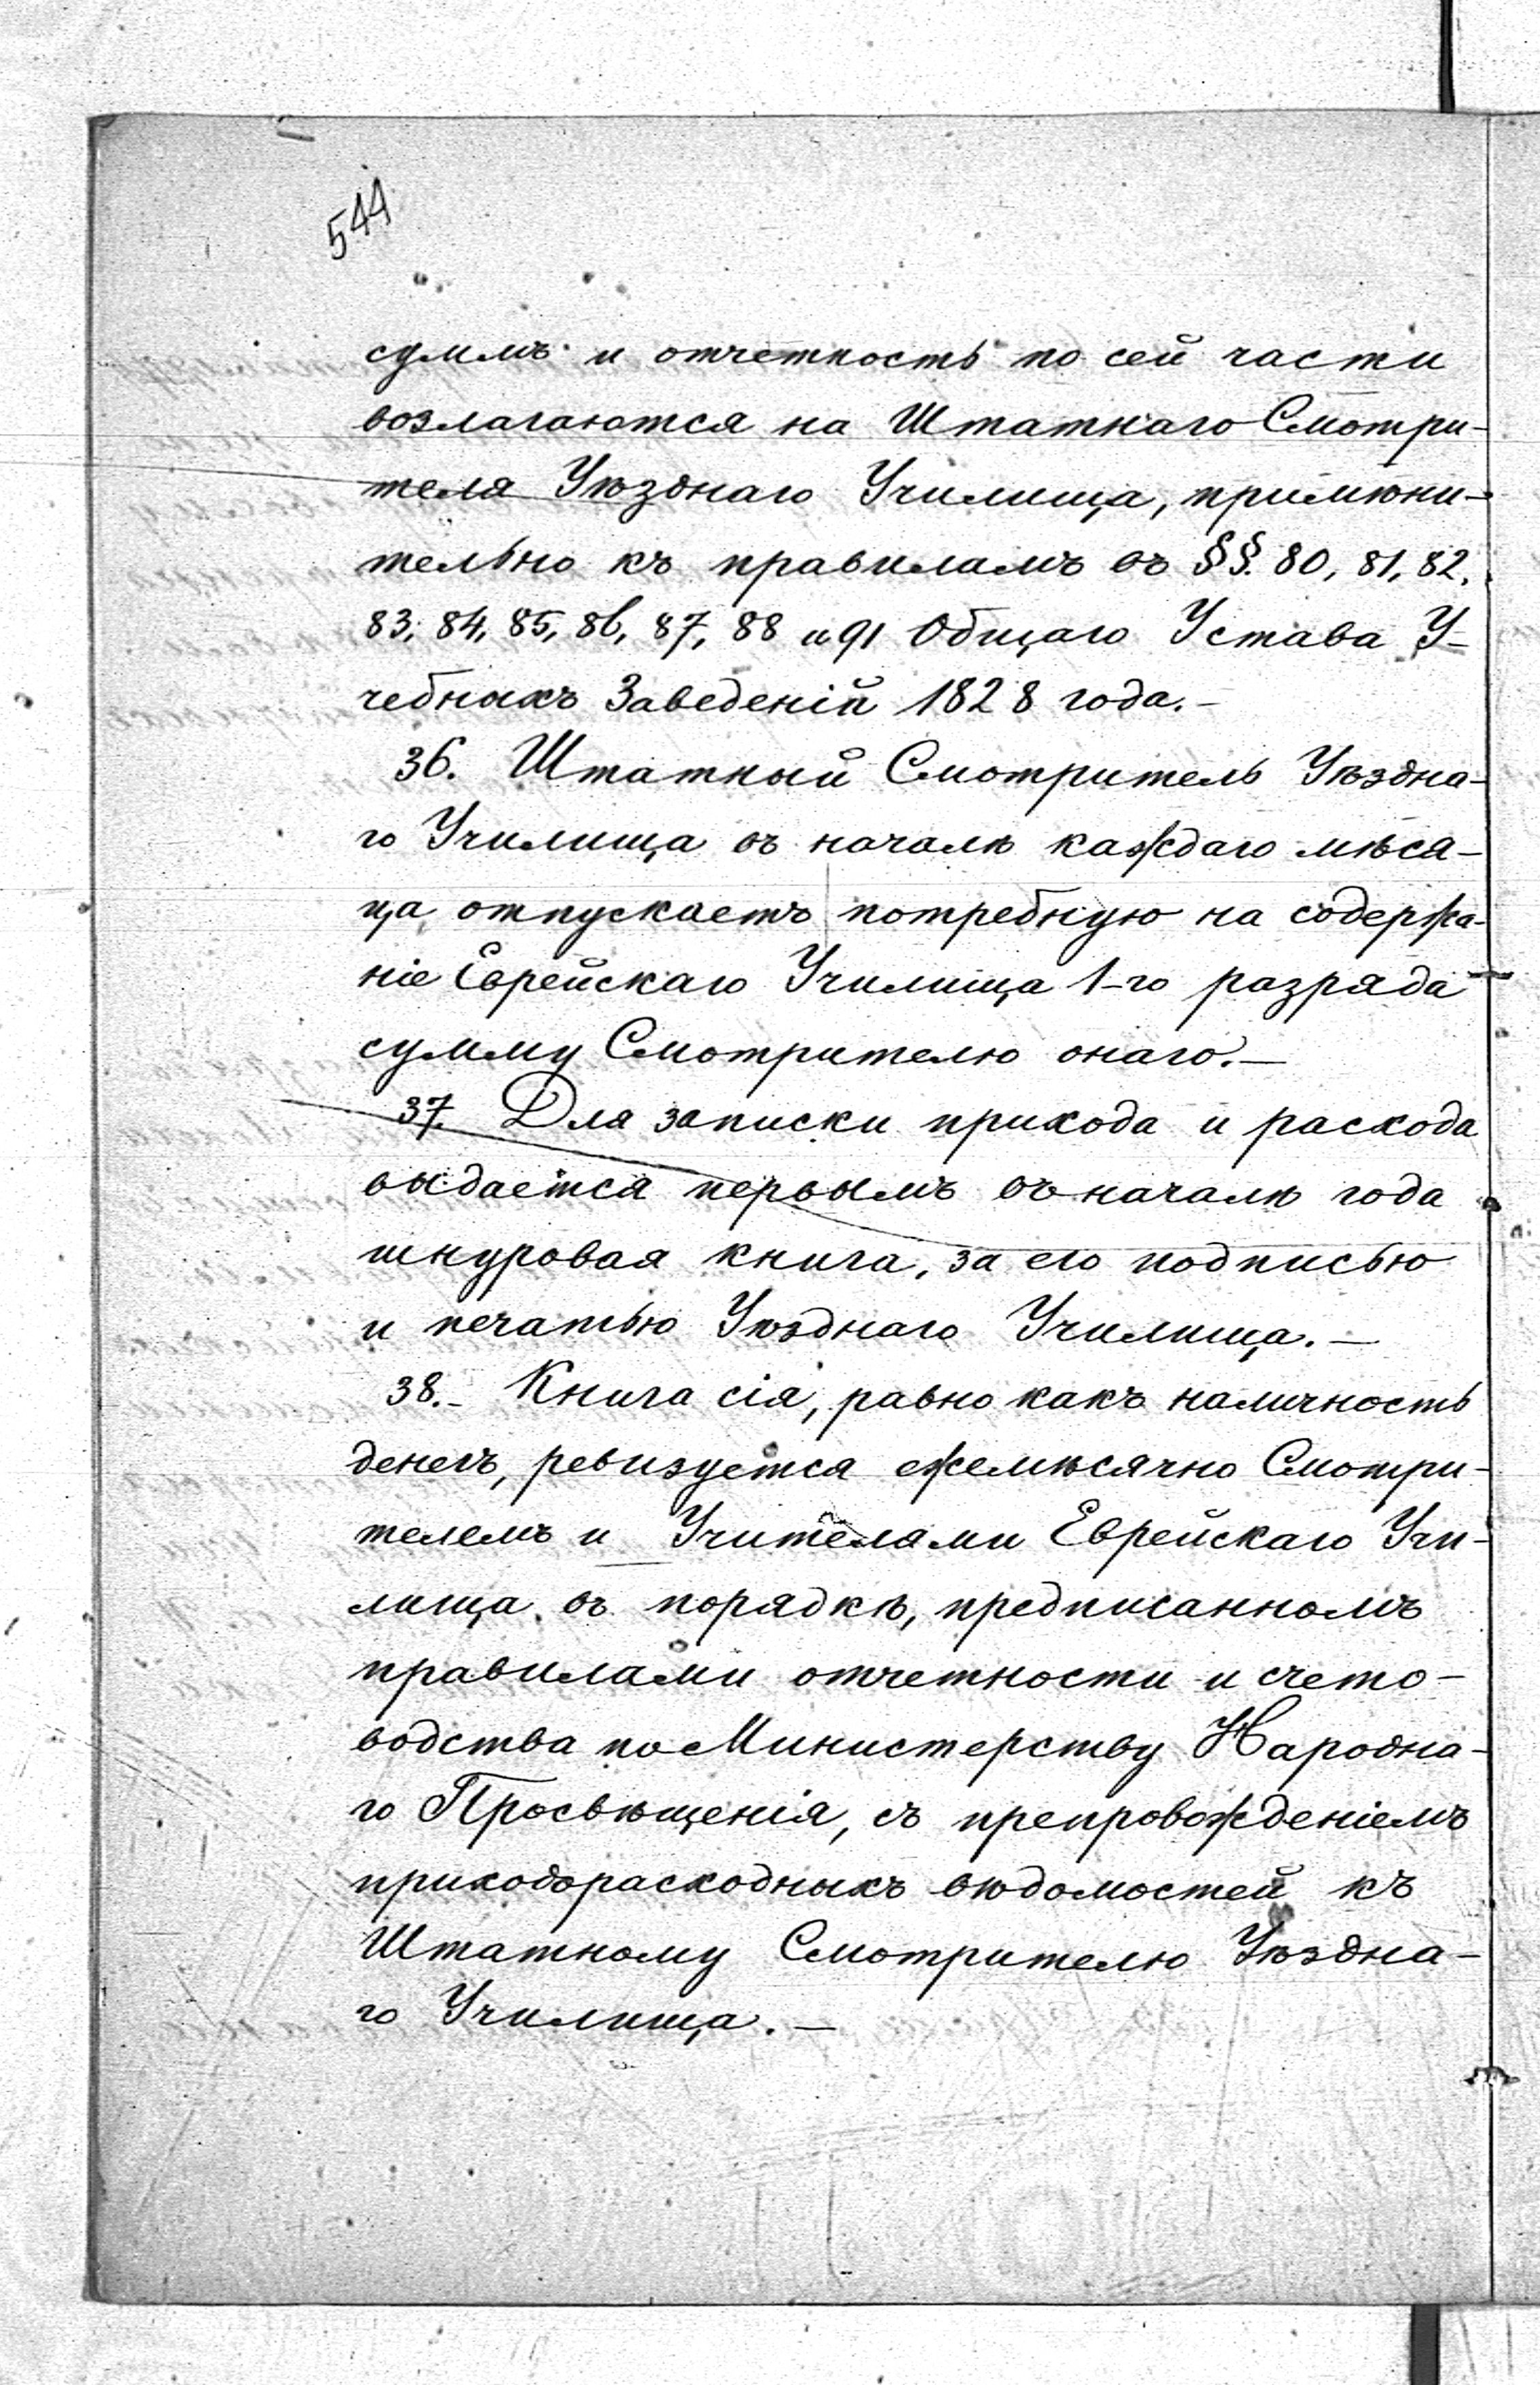 544
суммъ и отчетность по сей части
возлагаются на Штатнаго Смотри-
теля Уѣзднаго Училища, примѣни-
тельно къ правиламъ въ §§. 80, 81, 82,
83, 84, 85, 86, 87, 88 и 91 Общаго Устава У-
чебныхъ Заведеній 1828 года.-
36. Штатный Смотритель Уѣздна-
го Училища въ началѣ каждаго мѣся-
ца отпускаетъ потребную на содержа-
ніе Еврейскаго Училища 1-го разряда
сумму Смотрителю онаго.-
37. Для записки прихода и расхода
выдается первымъ въ началѣ года
шнуровая книга, за его подписью
и печатью Уѣзднаго Училища.-
38.- Книга сія, равно какъ наличность
денегъ, ревизуется ежемѣсячно Смотри-
телемъ и Учителями Еврейскаго Учи-
лища въ порядкѣ, предписанномъ
правилами отчетности и счето-
водства по Министерству Народна-
го Просвѣщенія, съ препровожденіемъ
приходорасходныхъ вѣдомостей къ
Штатному Смотрителю Уѣздна-
го Училища.-